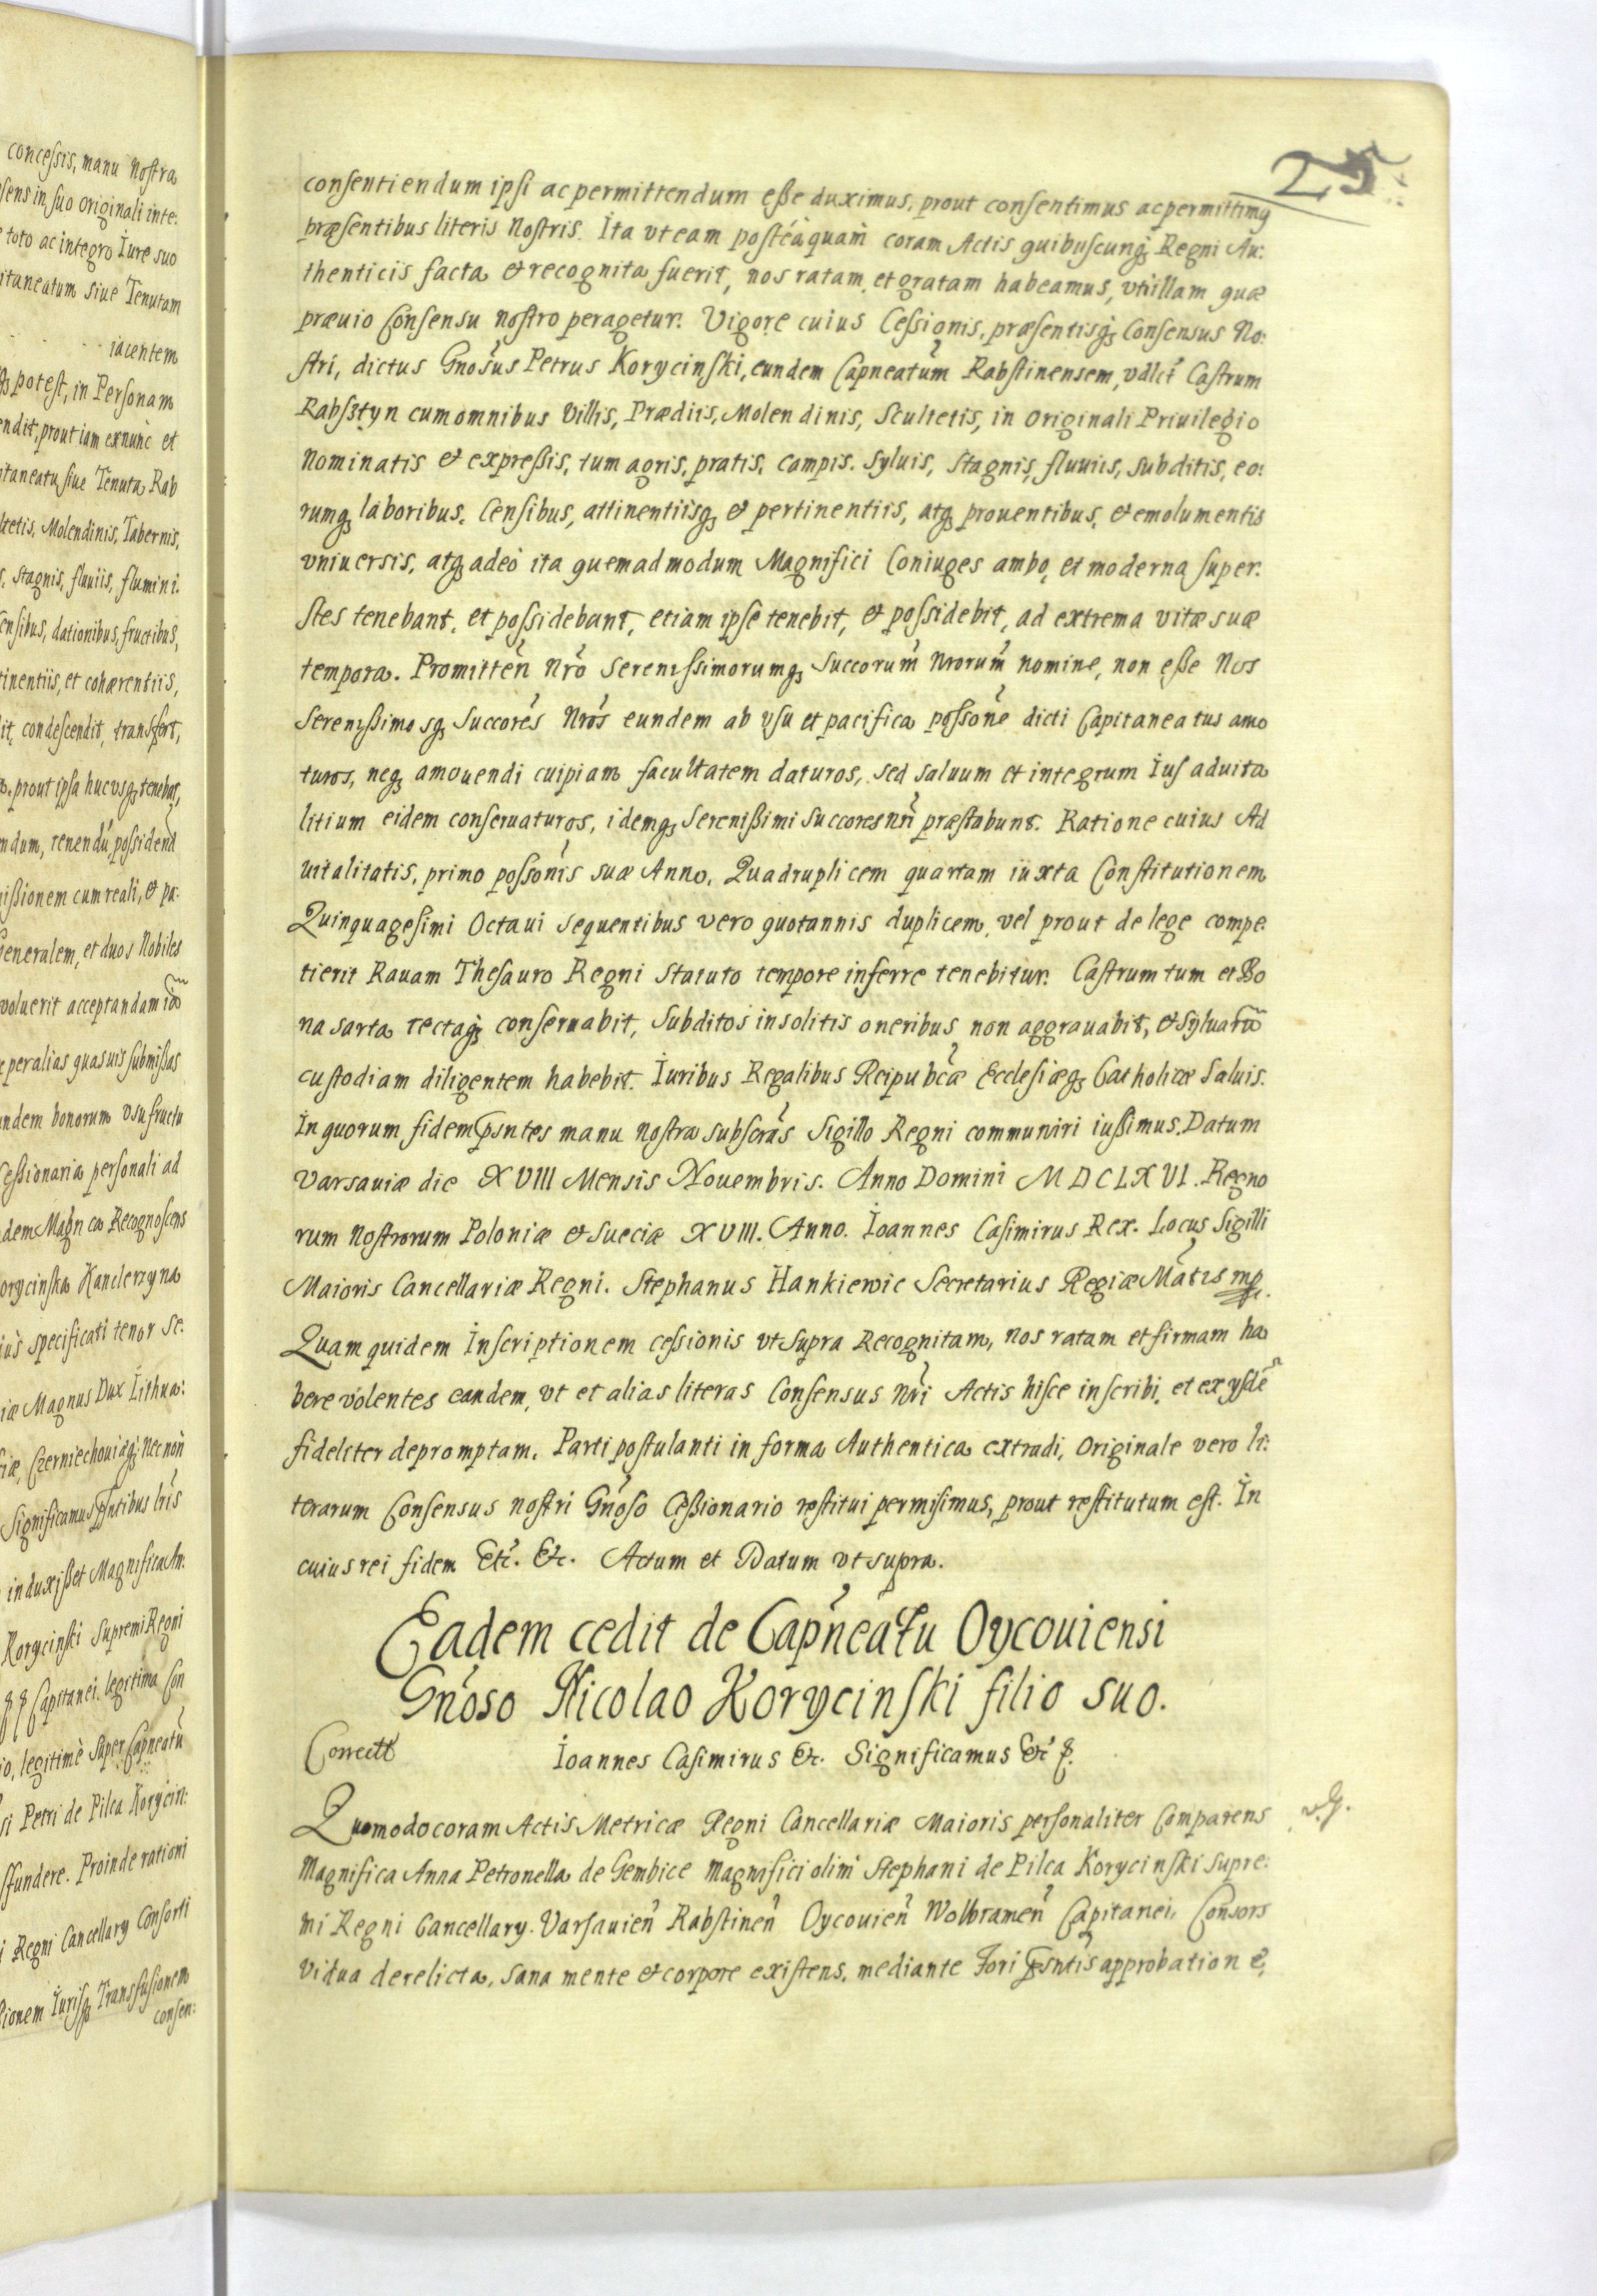 concessis, manu nostra
sens in suo originali inte:
toto ac integro Iure suo
itaneatum siue Tenutam
iacentem
potest, in Personam
endit, prout iam exnunc et
itaneatu siue Tenuta Rab
ltetis, Molendinis, Tabernis,
s, stagnis, fluuiis, flumini.
ensibus, dationibus, fructibus,
tinentiis, et cohærentiis,
it, condescendit, transfert,
prout ipsa hucvsq, tenebat,
ndum, tenendũ possidend
issionem cum reali, et pa:
Generalem, et duos Nobiles
voluerit acceptandam
per alias quasuis submissas
undem bonorum vsufructu
Cessionaria personali ad
dem Magn ca Recognoscens
orycinska Kanclerzyna
ius specificati tenor se:
iæ Magnus Dux Lithua:
iæ, Czerniechouiæq; necnon
Significamus pñtibus lris
induxisset Magnifica An:
Korycinski Supremi Regni
Capitanei legitima Con
io, legitimè super Capneatũ
si Petri de Pilca Korycin:
sfundere. Proinde rationi
i Regni Cancellary Consorti
sionem Iurisq Transfusionem
consen:
25
consentiendum ipsi ac permittendum esse duximus, prout consentimus ac permittimq
præsentibus literis Nostris. Ita vt eam posteaquam coram Actis quibuscunq, Regni Au:
thenticis facta et recognita fuerit, nos ratam et gratam habeamus, vti illam quæ
præuio Consensu nostro peragetur. Vigore cuius Cessionis, præsentisq, Consensus No:
stri, dictus Gnosus Petrus Korycinski, eundem Capneatum Rabstinensem, vdlct Castrum
Rabsztyn cum omnibus Villis, Prædiis, Molendinis, Scultetis, in Originali Priuilegio
Nominatis et expressis, tum agris, pratis, campis, syluis, stagnis, fluuiis, subditis, eo:
rumq, laboribus, Censibus, attinentiisq, et pertinentiis, atq, prouentibus, et emolumentis
vniuersis, atq, adeo ita quemadmodum Magnifici Coniuges ambo, et moderna super:
stes tenebant, et possidebant, etiam ipse tenebit, et possidebit, ad extrema vitæ suæ
tempora. Promitten nro Serenissimorumq, Succorum Nrorum nomine, non esse Nos
Serenissimosq, Succores Nros eundem ab vsu et pacifica possone dicti Capitaneatus amo
turos, neq, amouendi cuipiam facultatem daturos, sed saluum et integrum Ius aduita
litium eidem conseruaturos, idemq, Serenissimi Succores nri præstabunt. Ratione cuius Ad
uitalitatis, primo possonis suæ Anno, Quadruplicem quartam iuxta Constitutionem
Quinquagesimi Octaui sequentibus vero quotannis duplicem, vel prout de lege compe:
tierit Rauam Thesauro Regni statuto tempore inferre tenebitur. Castrum tum et Bo
na sarta tectaq, conseruabit, Subditos insolitis oneribus non aggrauabit, et syluarũ
custodiam diligentem habebit. Iuribus Regalibus Reipubcæ Ecclesiæq, Catholicæ Saluis.
In quorum fidem psntes manu nostra subscras Sigillo Regni communiri iussimus. Datum
Varsauiæ die XVIII Mensis Nouembris. Anno Domini MDCLXVI. Regno
rum Nostrorum Poloniæ et Sueciæ XVIII. Anno. Ioannes Casimirus Rex. Locus Sigilli
Maioris Cancellariæ Regni. Stephanus Hankiewic Secretarius Regiæ Matis mp
Quam quidem Inscriptionem cessionis vt supra Recognitam, nos ratam et firmam ha
bere volentes eandem, vt et alias literas Consensus Nri Actis hisce inscribi, et ex ysdẽ
fideliter depromptam, Parti postulanti in forma Authentica extradi, Originale vero li:
terarum Consensus nostri Gnoso Cessionario restitui permisimus, prout restitutum est. In
cuius rei fidem Etc. &c. Actum et Datum vt supra.
Eadem cedit de Capneatu Oycouiensi
Gnoso Nicolao Korycinski filio suo.
Correctt
Ioannes Casimirus &c. Significamus &c
Quomodo coram Actis Metricæ Regni Cancellariæ Maioris personaliter Comparens
Magnifica Anna Petronella de Gembice Magnifici olim Stephani de Pilca Korycinski Supre:
mi Regni Cancellary. Varsauien Rabstinen Oycouien Wolbramen Capitanei, Consors
Vidua derelicta, sana mente et corpore existens, mediante Fori psntis approbatione,